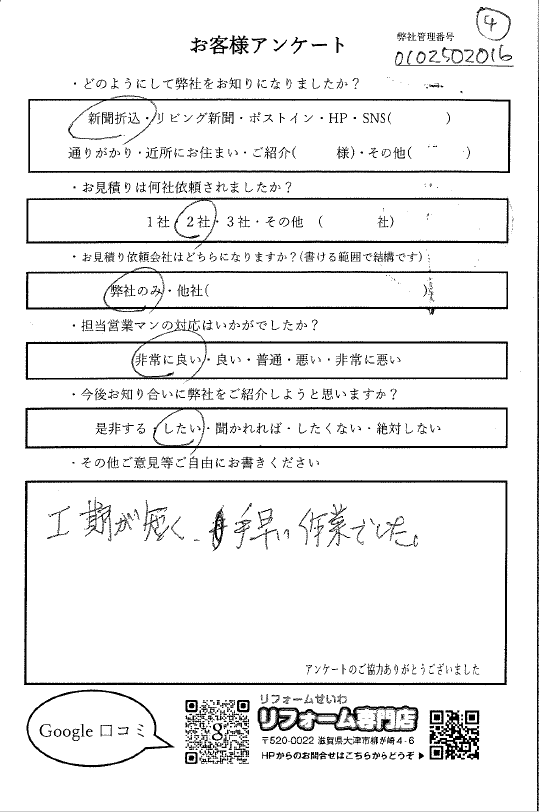 ④
お客様アンケート
弊社管理番号
0102502016
・どのようにして弊社をお知りになりましたか？
新聞折込・リビング新聞・ポストイン・HP・SNS(　　　　)
通りがかり・近所にお住まい・ご紹介(　　　様)・その他(　　　　)
・お見積りは何社依頼されましたか？
1社・2社・3社・その他　(　　　　社)
・お見積り依頼会社はどちらになりますか？(書ける範囲で結構です)
弊社のみ・他社(　　　　　　　　　　　　　　　　)
・担当営業マンの対応はいかがでしたか？
非常に良い・良い・普通・悪い・非常に悪い
・今後お知り合いに弊社をご紹介しようと思いますか？
是非する・したい・聞かれれば・したくない・絶対しない
・その他ご意見等ご自由にお書きください
工期が短く、手早い作業でした。
アンケートのご協力ありがとうございました
Google 口コミ
8
リフォームせいわ
リフォーム専門店
〒520-0022 滋賀県大津市柳が崎4-6
HPからのお問合せはこちらからどうぞ ▶